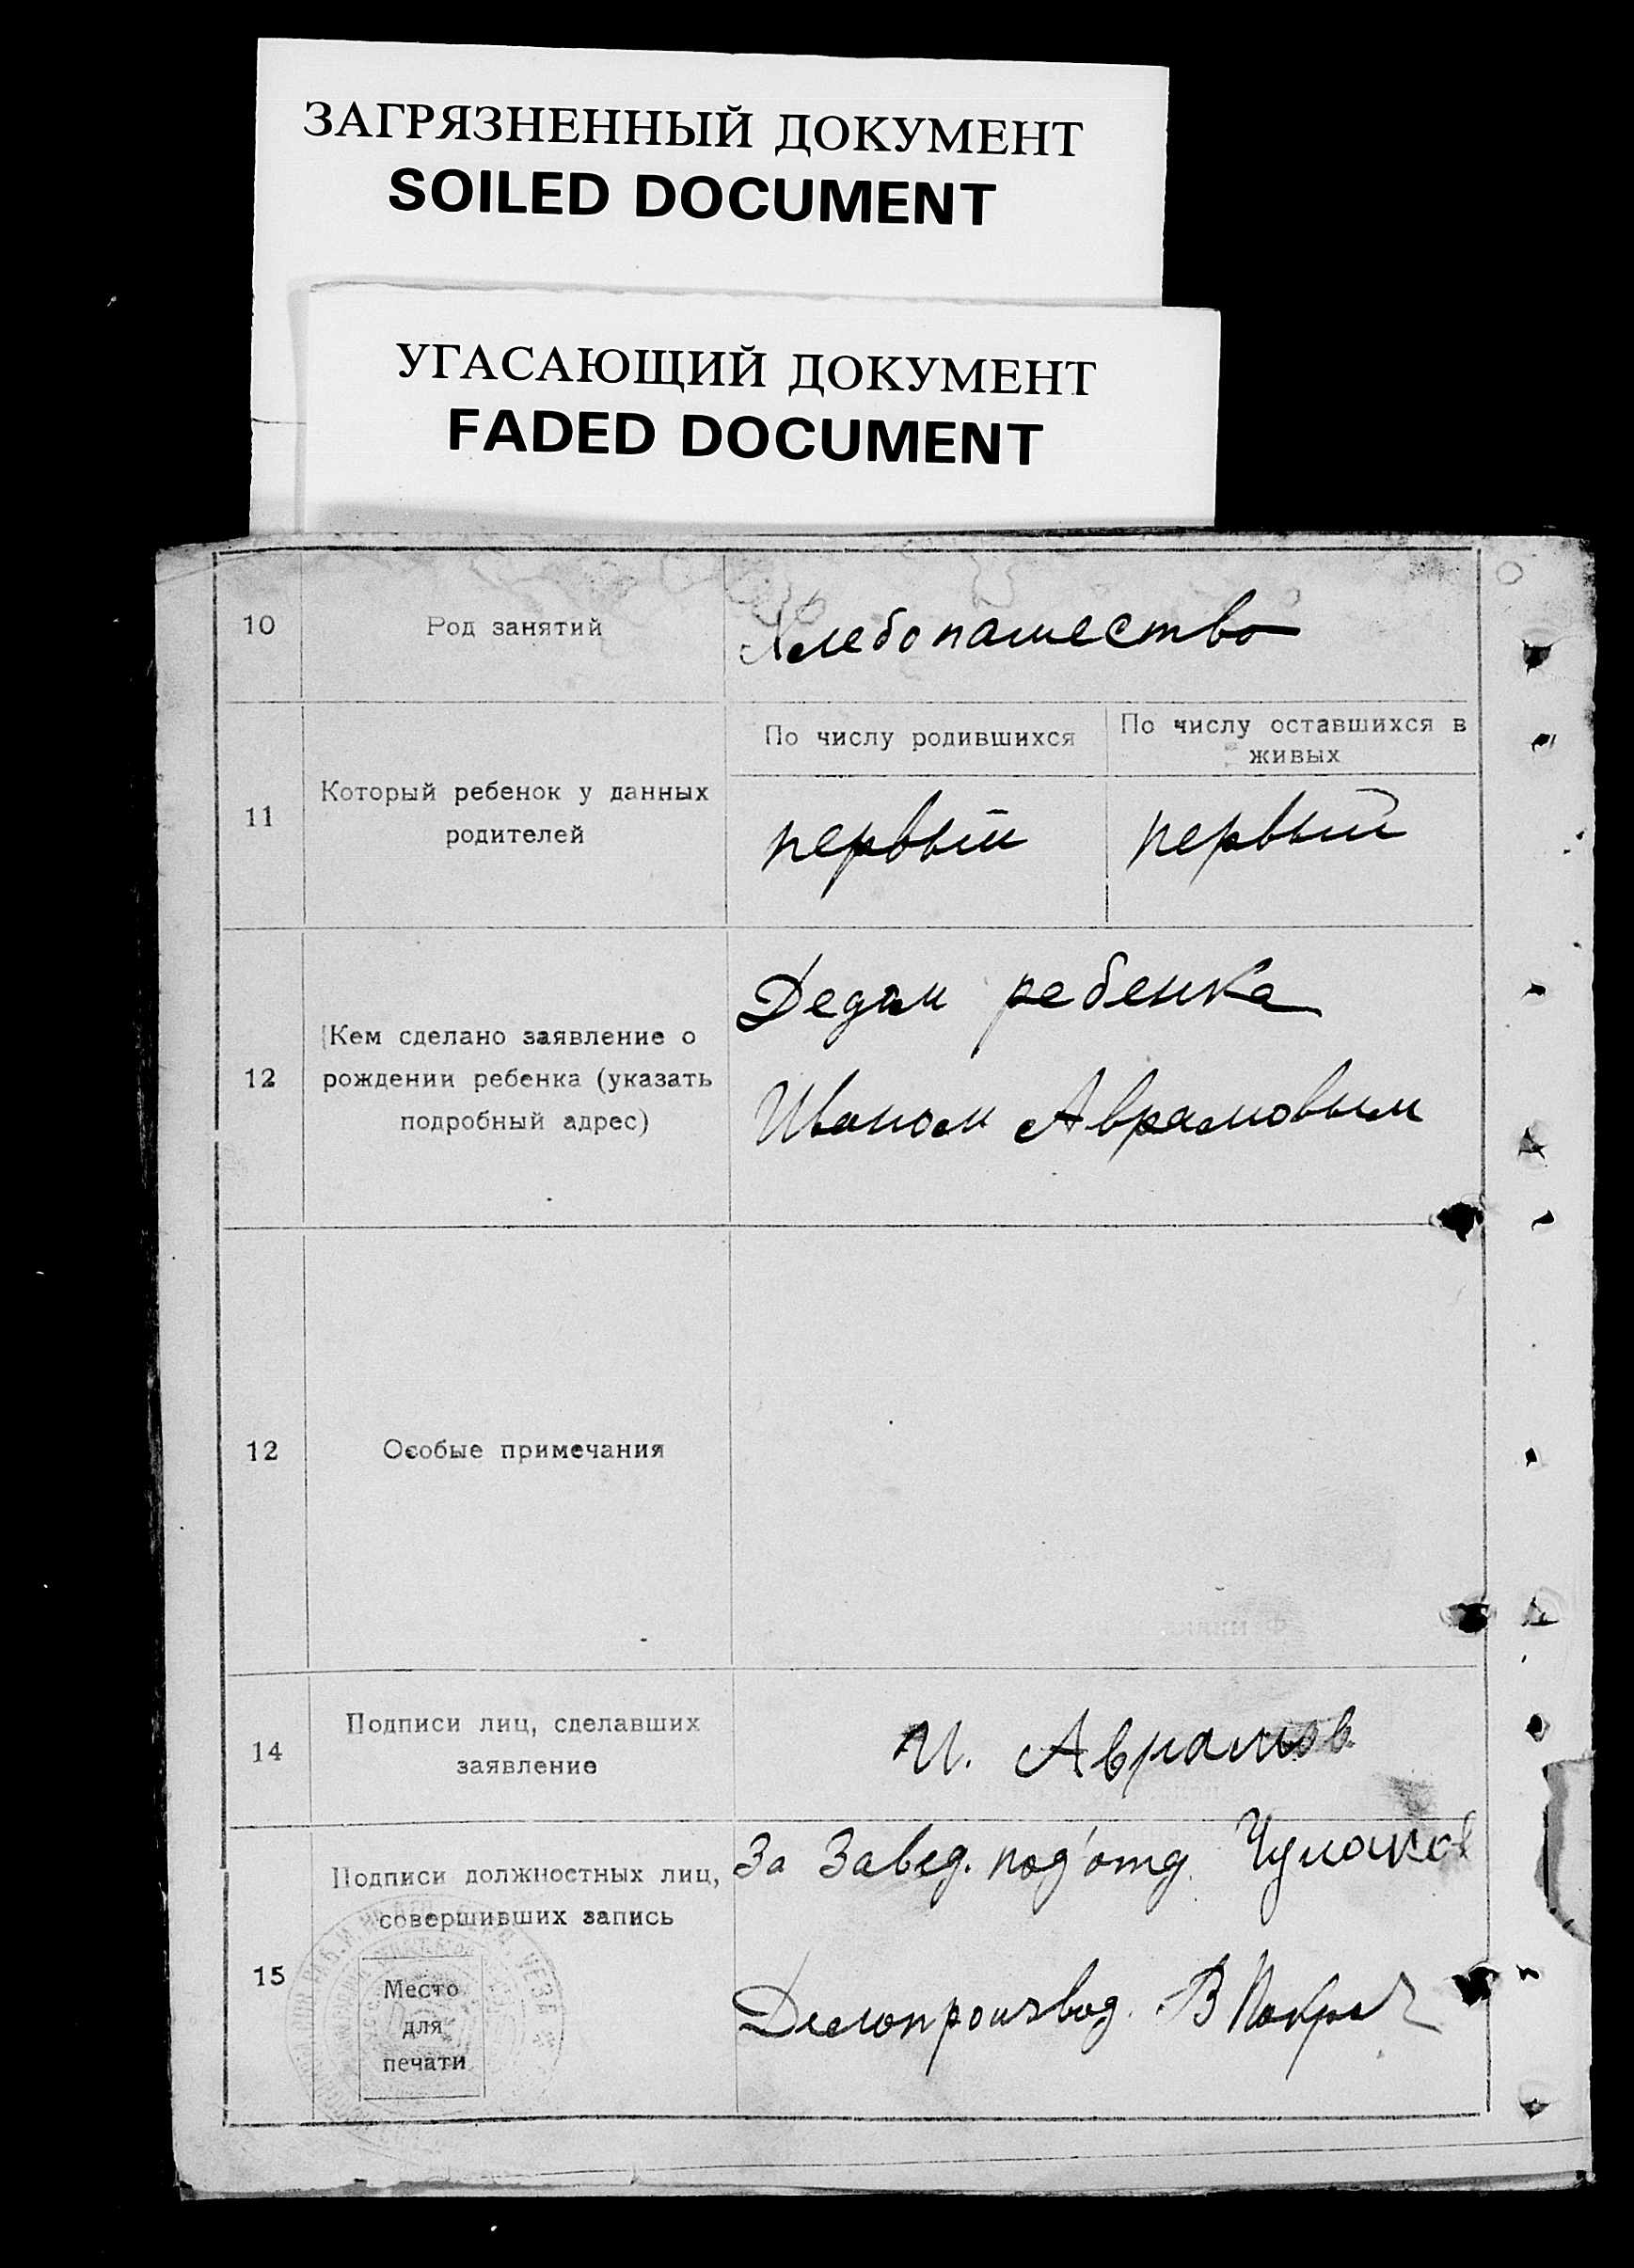 ЗАГРЯЗНЕННЫЙ ДОКУМЕНТ
SOILED DOCUMENT
УГАСАЮЩИЙ ДОКУМЕНТ
FADED DOCUMENT
10 Род занятий Хлебопашество
По числу родившихся По числу оставшихся в
живых
11 Который ребенок у данных
родителей
первый первый
Дедом ребенка
Кем сделано заявление о
12 рождении ребенка (указать
подробный адрес)
Иваном Аврамовым
12 Особые примечания
14 Подписи лиц, сделавших
заявление
И. Аврамов
Подписи должностных лиц, За Завед. под'отд. Чумаков
совершивших запись
15
Место
для
печати
Делопроизвод. В